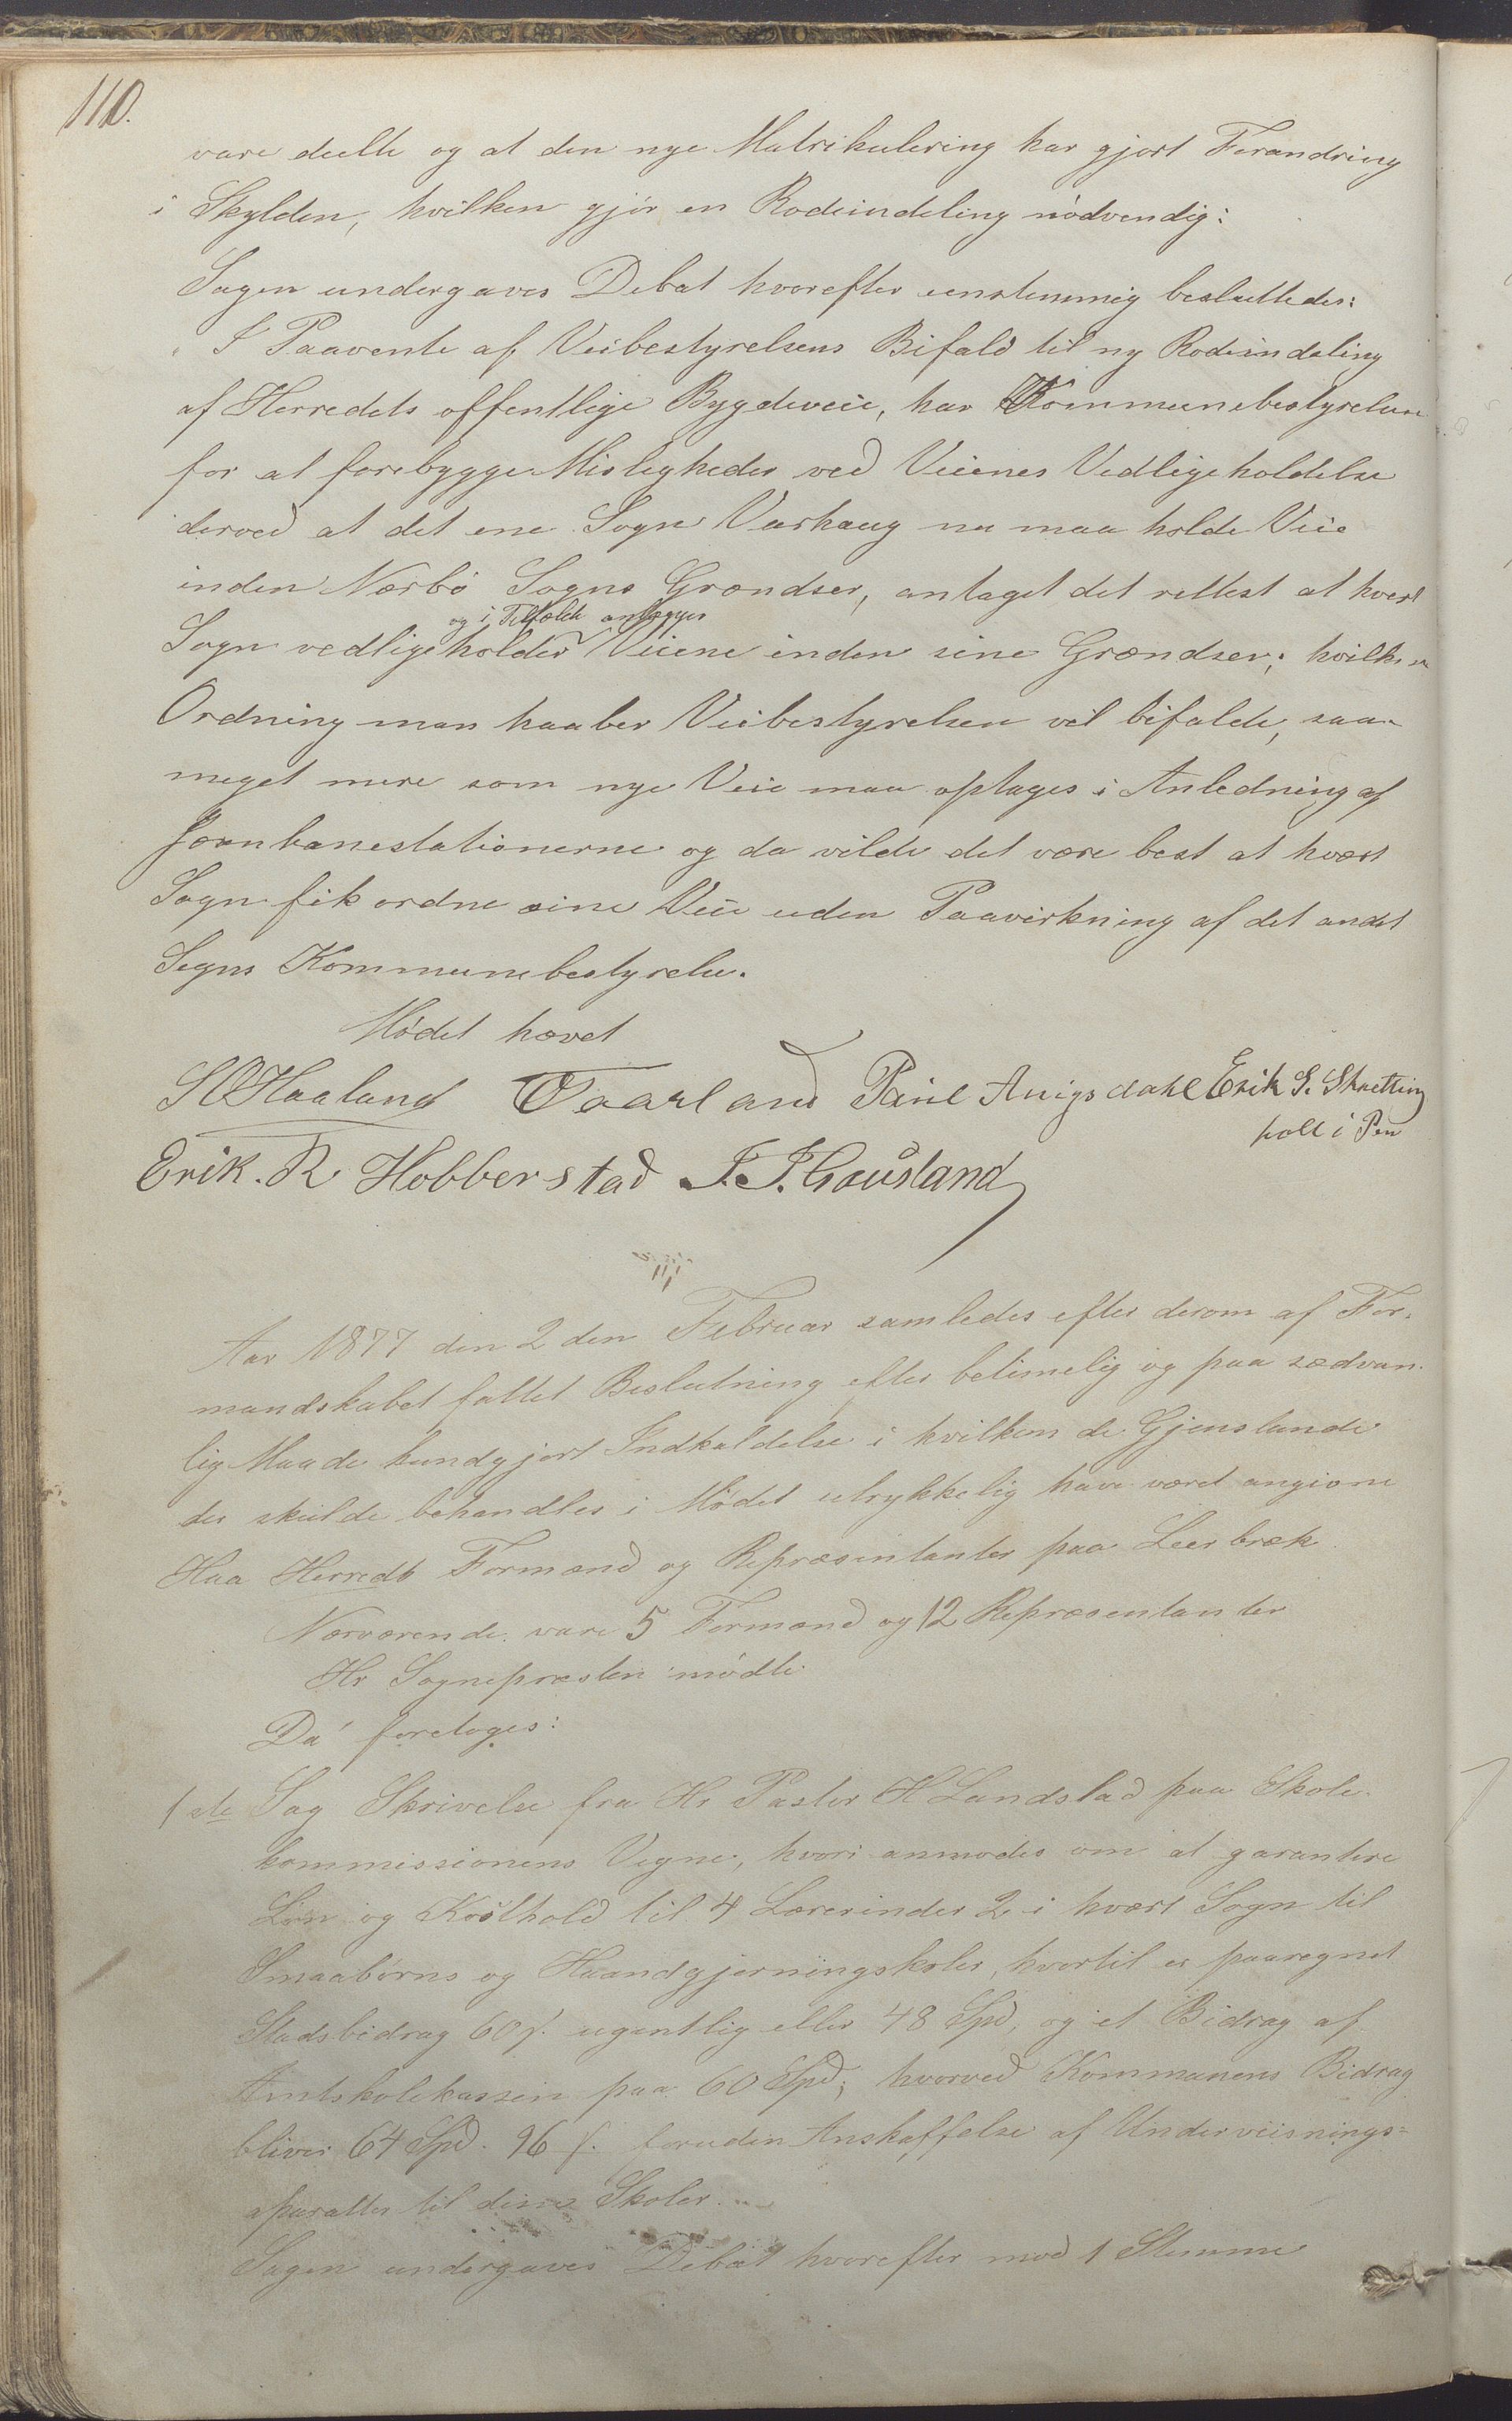 110.
vare deelte og at den nye Matrikulering har gjort Forandring
i Skylden, hvilken gjör en Rodeindeling nödvendig:
Sagen undergaves Debat hvorefter eenstemmig besluttedes:
I Paavente af Veibestyrelsens Bifald til ny Rodeindeling
af Herredets offentlige Bygdeveie, har Kommunebestyrelsen
for at forebygge Misligheder ved Veienes Vedligeholdelse
derved at det ene Sogn Varhaug nu maa holde Veie
inden Nærbö Sogns Grændser, antaget det rettest at hvert
og i Tilfælde anlægger
Sogn vedligeholder Veiene inden sine Grændser; hvilken
Ordning man haaber Veibestyrelsen vil bifalde, saa-
meget mere som nye Veie maa optages i Anledning af
Jernbanestationerne og da vilde det være best at hvært
Sogn fik ordne sine Veie uden Paavirkning af det andet
Sogns Kommunebestyrelse.
Mödet hævet
SOHaaland Taarland Paul Anigsdahl Erik S. Skretting
holt i Pen
Erik. R Hobberstad J. J. Gausland
Aar 1877 den 2den Februar samledes efter derom af For-
mandskabet fattet Beslutning efter betimelig og paa sædvan-
lig Maade kundgjort Indkaldelse i hvilken de Gjenstande
der skulde behandles i Mödet utrykkelig have været angivne
Haa Herreds Formænd og Repræsentanter paa Leerbræk
Nærværende vare 5 Formænd og 12 Repræsentanter
Hr Sognepræsten mödte
Da foretoges:
1ste Sag Skrivelse fra Hr Pastor H Landstad paa Skole-
kommissionens Vegne, hvori anmodes om at garantere
Lön og Kosthold til 4 Lærerinder 2 i hvært Sogn til
Smaabörns og Haandgjerningskoler, hvortil er paaregnet
Stadsbidrag 60 s. ugentlig eller 48 Spd, og et Bidrag af
Amtskolekassen paa 60 Spd; hvorved Kommunens Bidrag
bliver 64 Spd. 96 s. foruden Anskaffelse af Underviisnings-
aparatter til disse Skoler.
Sagen undergaves Debat hvorefter mod 1 Stemme